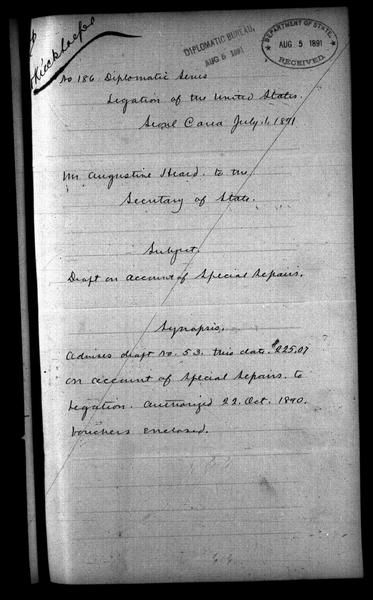 DIPLOMATIC BUREAU,
AUG 6 1891
DEPARTMENT OF STATE,
AUG 5 1891
RECEIVED.
No 186 Diplomatic Series
Legation of the United States.
Seoul Corea July 1, 1891
Mr Augustine Heard. to the
Secretary of State.
Subject.
Draft on account of Special Repairs.
Synopsis.
Advises draft No. 53. this date. $225.07
on account of Special Repairs. to
Legation. Authorized 22. Oct. 1890.
Vouchers enclosed.